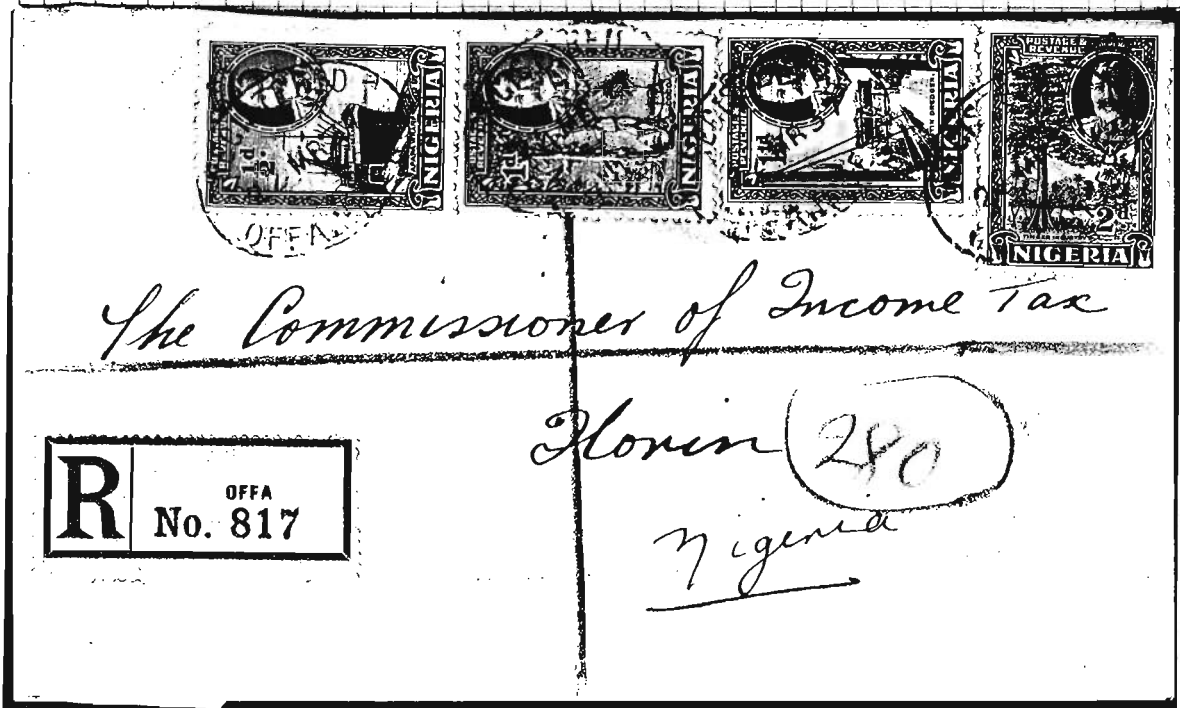 ½d NIGERIA
1d NIGERIA
1½d NIGERIA
POSTAGE & REVENUE
2d
TIMBER INDUSTRY
NIGERIA
OFFA
The Commissioner of Income Tax
Ilorin 280
Nigeria
R OFFA
No. 817